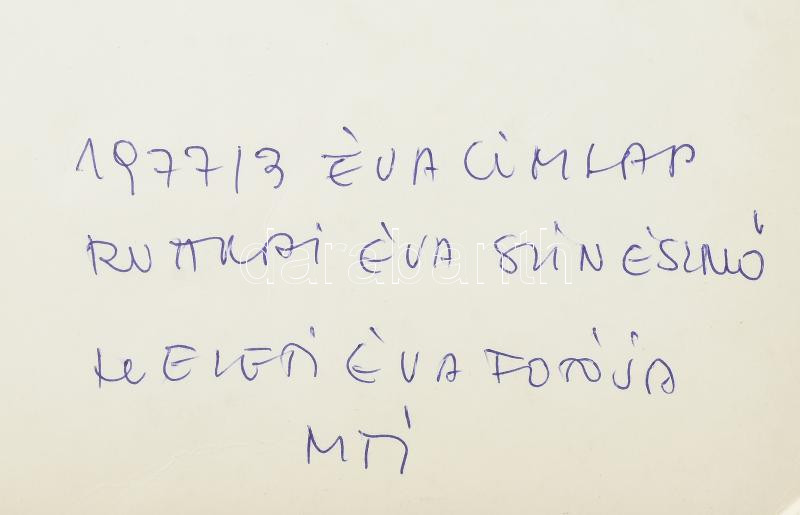 1977/3 ÉVA CÍMLAP
RUTTKAI ÉVA SZINÉSZNŐ
KELETI ÉVA FOTÓJA
MTI
darabanth